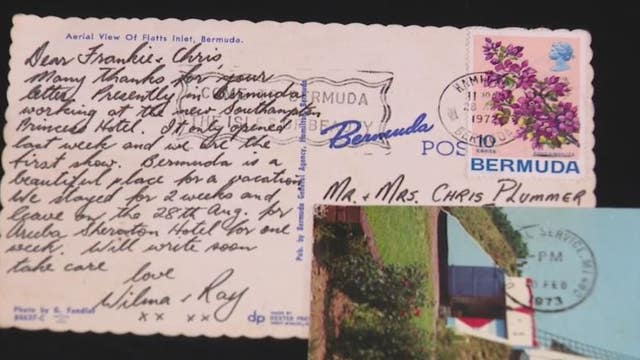 Aerial View Of Flatts Inlet, Bermuda.
Dear Frankie & Chris
Many thanks for your
letter. Presently in Bermuda
working at the new Southampton
Princess Hotel. It only opened
last week and we are the
first show. Bermuda is a
beautiful place for a vacation
We stayed for 2 weeks and
leave on the 28th Aug. for
Aruba Sheraton Hotel for one
week. Will write soon
take care
love
Wilma & Ray
xx xx
Photo by G.
84637-C
dp
MADE BY
DEXTER
Pub. by Bermuda General Agency, Hamilton, Bermuda
BERMUDA
THE ISLES OF
Bermuda
POS
HAMI
28
1972
BER
10
CENTS
BERMUDA
MR. & MRS. CHRIS PLUMMER
SERVICE,
PM
FEB
1973